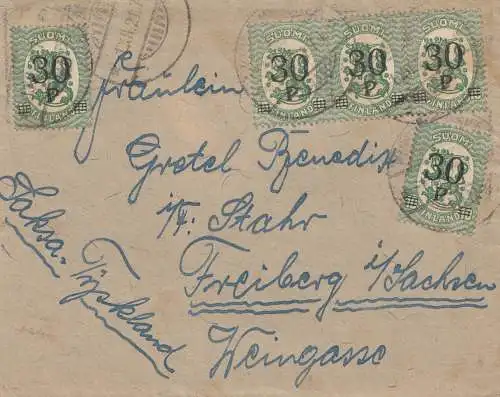 SUOMI 30 P FINLAND
SUOMI 30 P FINLAND
SUOMI 30 P FINLAND
SUOMI 30 P FINLAND
SUOMI 30 P FINLAND
Fräulein
Gretel Benedix
i/F. Stahr
Freiberg i/Sachsen
Weingasse
Saksa-
Tyskland